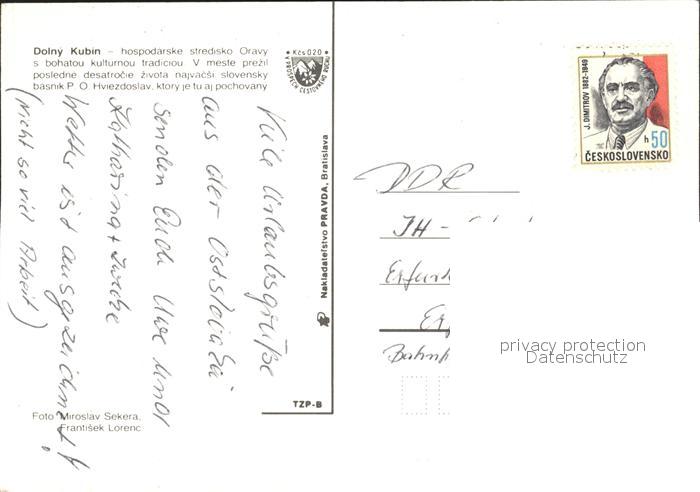 Dolný Kubín – hospodárske stredisko Oravy
s bohatou kulturnou tradíciou. V meste prežil
posledné desaťročie života najväčší slovenský
básnik P. O. Hviezdoslav, ktorý je tu aj pochovaný
Kčs 0,20
V PROSPECH CESTOVNÉHO RUCHU
Viele Urlaubsgrüße
aus der Ostslowakei
senden Euch Uwe und
Katharina +
Wetter ist ausgezeichnet!
(nicht so viel Arbeit)
Foto Miroslav Sekera,
František Lorenc
Nakladateľstvo PRAVDA, Bratislava
TZP-B
J. DIMITROV 1882-1949
h 50
ČESKOSLOVENSKO
DDR
JH -
Erfurt
Er
Bahnh
privacy protection
Datenschutz